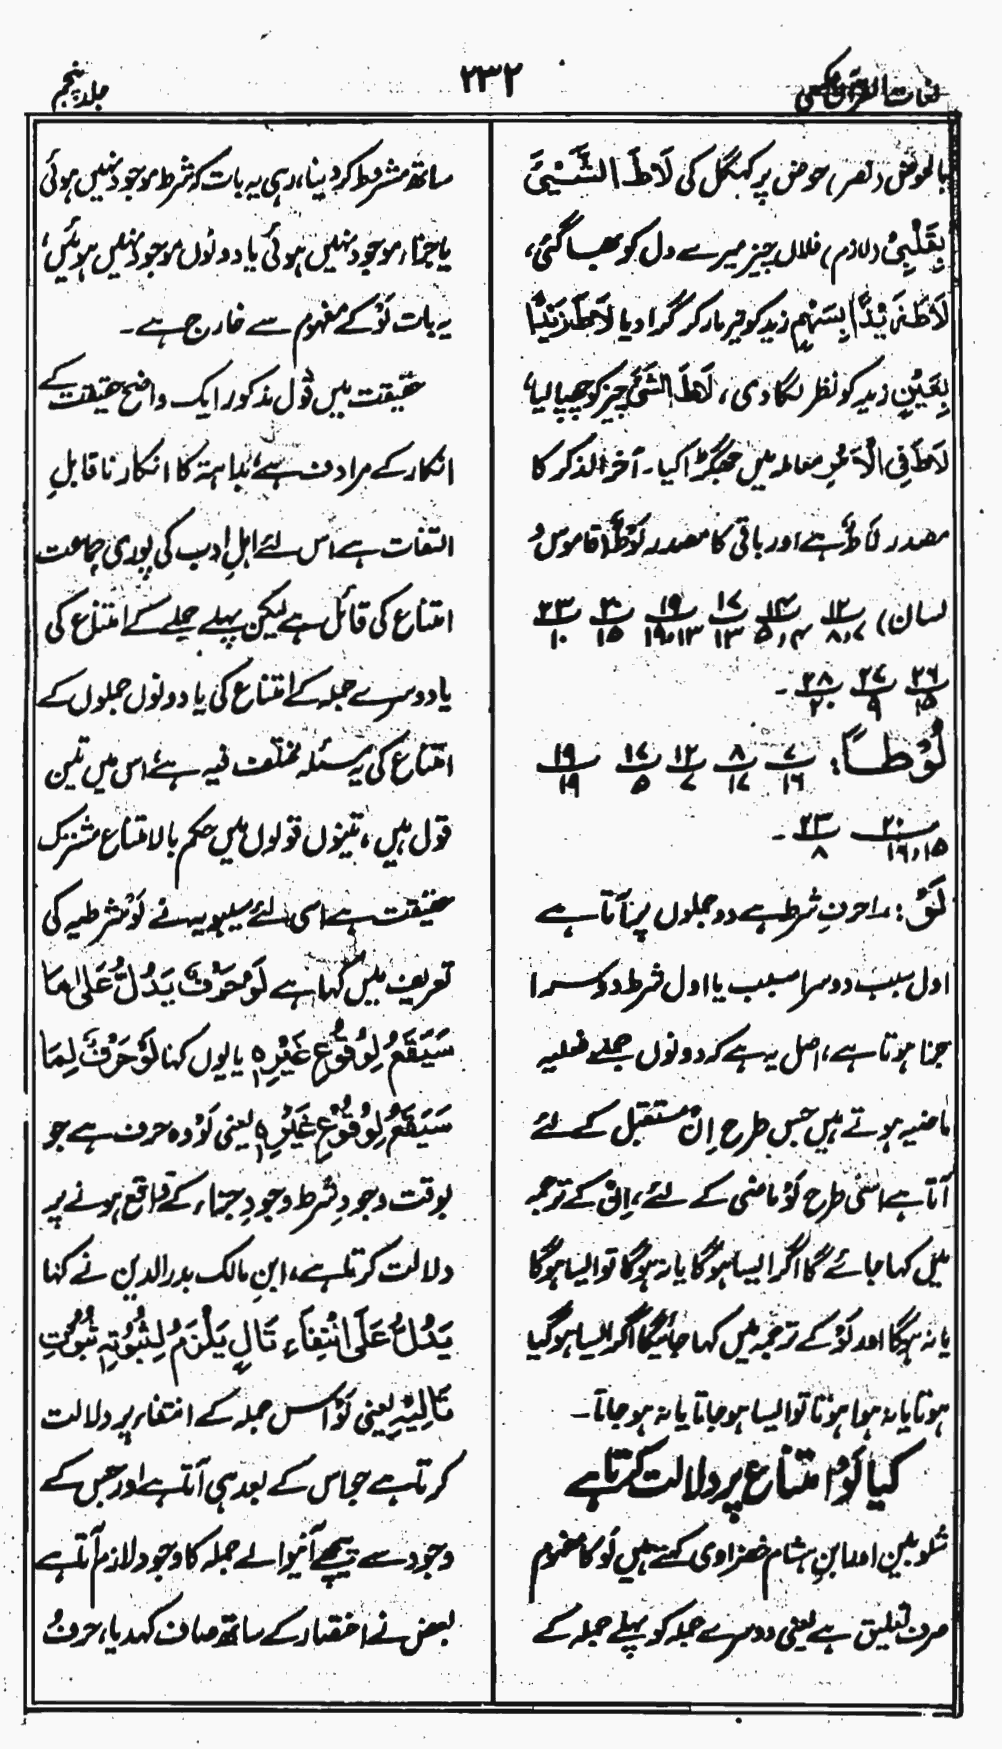 لغات القرآن مکمل
۲۳۲
جلد پنجم
بالحوض (نصر) حوض پر کہگل کی لَاطَ الشَّیْئُ
بِقَلْبِیْ (لازم) فلاں چیز میرے دل کو بھا گئی،
لَاطَ زَیْدًا بِسَہْمٍ زید کو تیر مار کر گرا دیا لَاطَ زَیْدًا
بِعَیْنٍ زید کو نظر لگا دی، لَاطَ الشَّیْئَ چیز کو چھپا لیا،
لَاطَ فِی الْاَمْرِ معاملہ میں جھگڑا کیا۔ آخر الذکر کا
مصدر لَاطٌ ہے اور باقی کا مصدر لَوْطٌ (قاموس و
لسان) ۱۲/۸،۷ ۱۴/۵،۴ ۱۷/۱۳ ۱۹/۱۹،۱۳ ۲۰/۱۵ ۲۳/۱۰
۲۶/۱۵ ۲۷/۹ ۲۸/۲۰ ۔
لُوْطًا: ۷/۱۶ ۸/۱۷ ۱۲/۷ ۱۷/۵ ۱۹/۱۹
۲۰/۱۶،۱۵ ۲۳/۸ ۔
لَوْ: ۱ حرفِ شرط ہے دو جملوں پر آتا ہے
اول سبب دوسرا مسبب یا اول شرط دوسرا
جزا ہوتا ہے، اصل یہ ہے کہ دونوں جملے فعلیہ
ماضیہ ہوتے ہیں جس طرح اِنْ مستقبل کے لئے
آتا ہے اسی طرح لَوْ ماضی کے لئے، اِنْ کے ترجمہ
میں کہا جائے گا اگر ایسا ہوگا یا نہ ہوگا تو ایسا ہوگا
یا نہ ہوگا اور لَوْ کے ترجمہ میں کہا جائیگا اگر ایسا ہو گیا
ہوتا یا نہ ہوا ہوتا تو ایسا ہو جاتا یا نہ ہو جاتا۔
کیا لَوْ امتناع پر دلالت کرتا ہے
شلوبین اور ابنِ ہشام خضراوی کہتے ہیں لَو کا مفہوم
صرف تعلیق ہے یعنی دوسرے جملہ کو پہلے جملہ کے
ساتھ مشروط کر دینا، رہی یہ بات کہ شرط موجود نہیں ہوئی
یا جزاء موجود نہیں ہوئی یا دونوں موجود نہیں ہوئیں،
یہ بات لَوْ کے مفہوم سے خارج ہے۔
حقیقت میں قول مذکور ایک واضح حقیقت کے
انکار کے مرادف ہے، بداہۃ کا انکار ناقابلِ
التفات ہے اس لئے اہلِ ادب کی پوری جماعت
امتناع کی قائل ہے لیکن پہلے جملے کے امتناع کی
یا دوسرے جملہ کے امتناع کی یا دونوں جملوں کے
امتناع کی یہ مسئلہ مختلف فیہ ہے، اس میں تین
قول ہیں، تینوں قولوں میں حکم بالامتناع مشترک
حقیقت ہے اسی لئے سیبویہ نے لَوْ شرطیہ کی
تعریف میں کہا ہے لَوْ حَرْفٌ یَدُلُّ عَلٰی مَا
سَیَقَعُ لِوُقُوْعِ غَیْرِہٖ یا یوں کہنا لَوْ حَرْفٌ لِمَا
سَیَقَعُ لِوُقُوْعِ غَیْرِہٖ یعنی لَوْ وہ حرف ہے جو
بوقت وجودِ شرط وجودِ جزاء کے واقع ہونے پر
دلالت کرتا ہے، ابنِ مالک بدر الدین نے کہا
یَدُلُّ عَلَی انْتِفَاءِ تَالٍ یَلْزَمُ لِثُبُوْتِہٖ ثُبُوْتُ
تَالِیْہِ یعنی لَوْ اس جملہ کے انتفاء پر دلالت
کرتا ہے جو اس کے بعد ہی آتا ہے اور جس کے
وجود سے پیچھے آنیوالے جملہ کا وجود لازم آتا ہے
بعض نے اختصار کے ساتھ صاف کہدیا، حرفُ